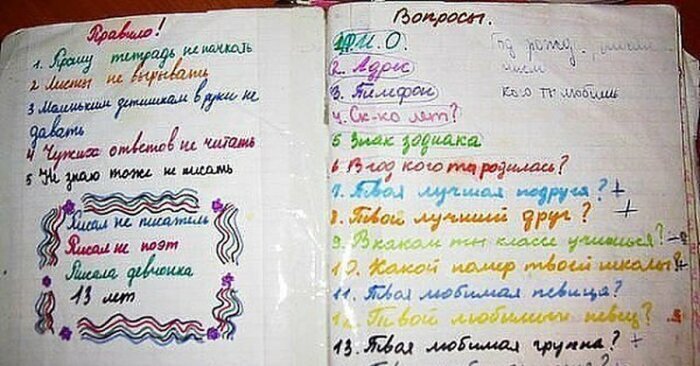 Правило!
1. Прошу тетрадь не пачкать
2 Листы не вырывать
3 Маленьким детишкам в руки не
давать
4 Чужих ответов не читать
5 Не знаю тоже не писать
Писал не писатель
Писал не поэт
Писала девчонка
13 лет
Вопросы.
1 Ф.И.О.
2. Адрес
3. Тилефон
4. Ск-ко лет?
5 Знак зодиака
6. В год кого ты родилась?
7. Твоя лучшая подруга? +
8. Твой лучший друг? +
9. В каком ты классе учишься?
10. Какой номер твоей школы?
11. Твоя любимая певица?
12. Твой любимый певец?
13. Твая любимая группа? +
Год рожд.
кого ты любишь